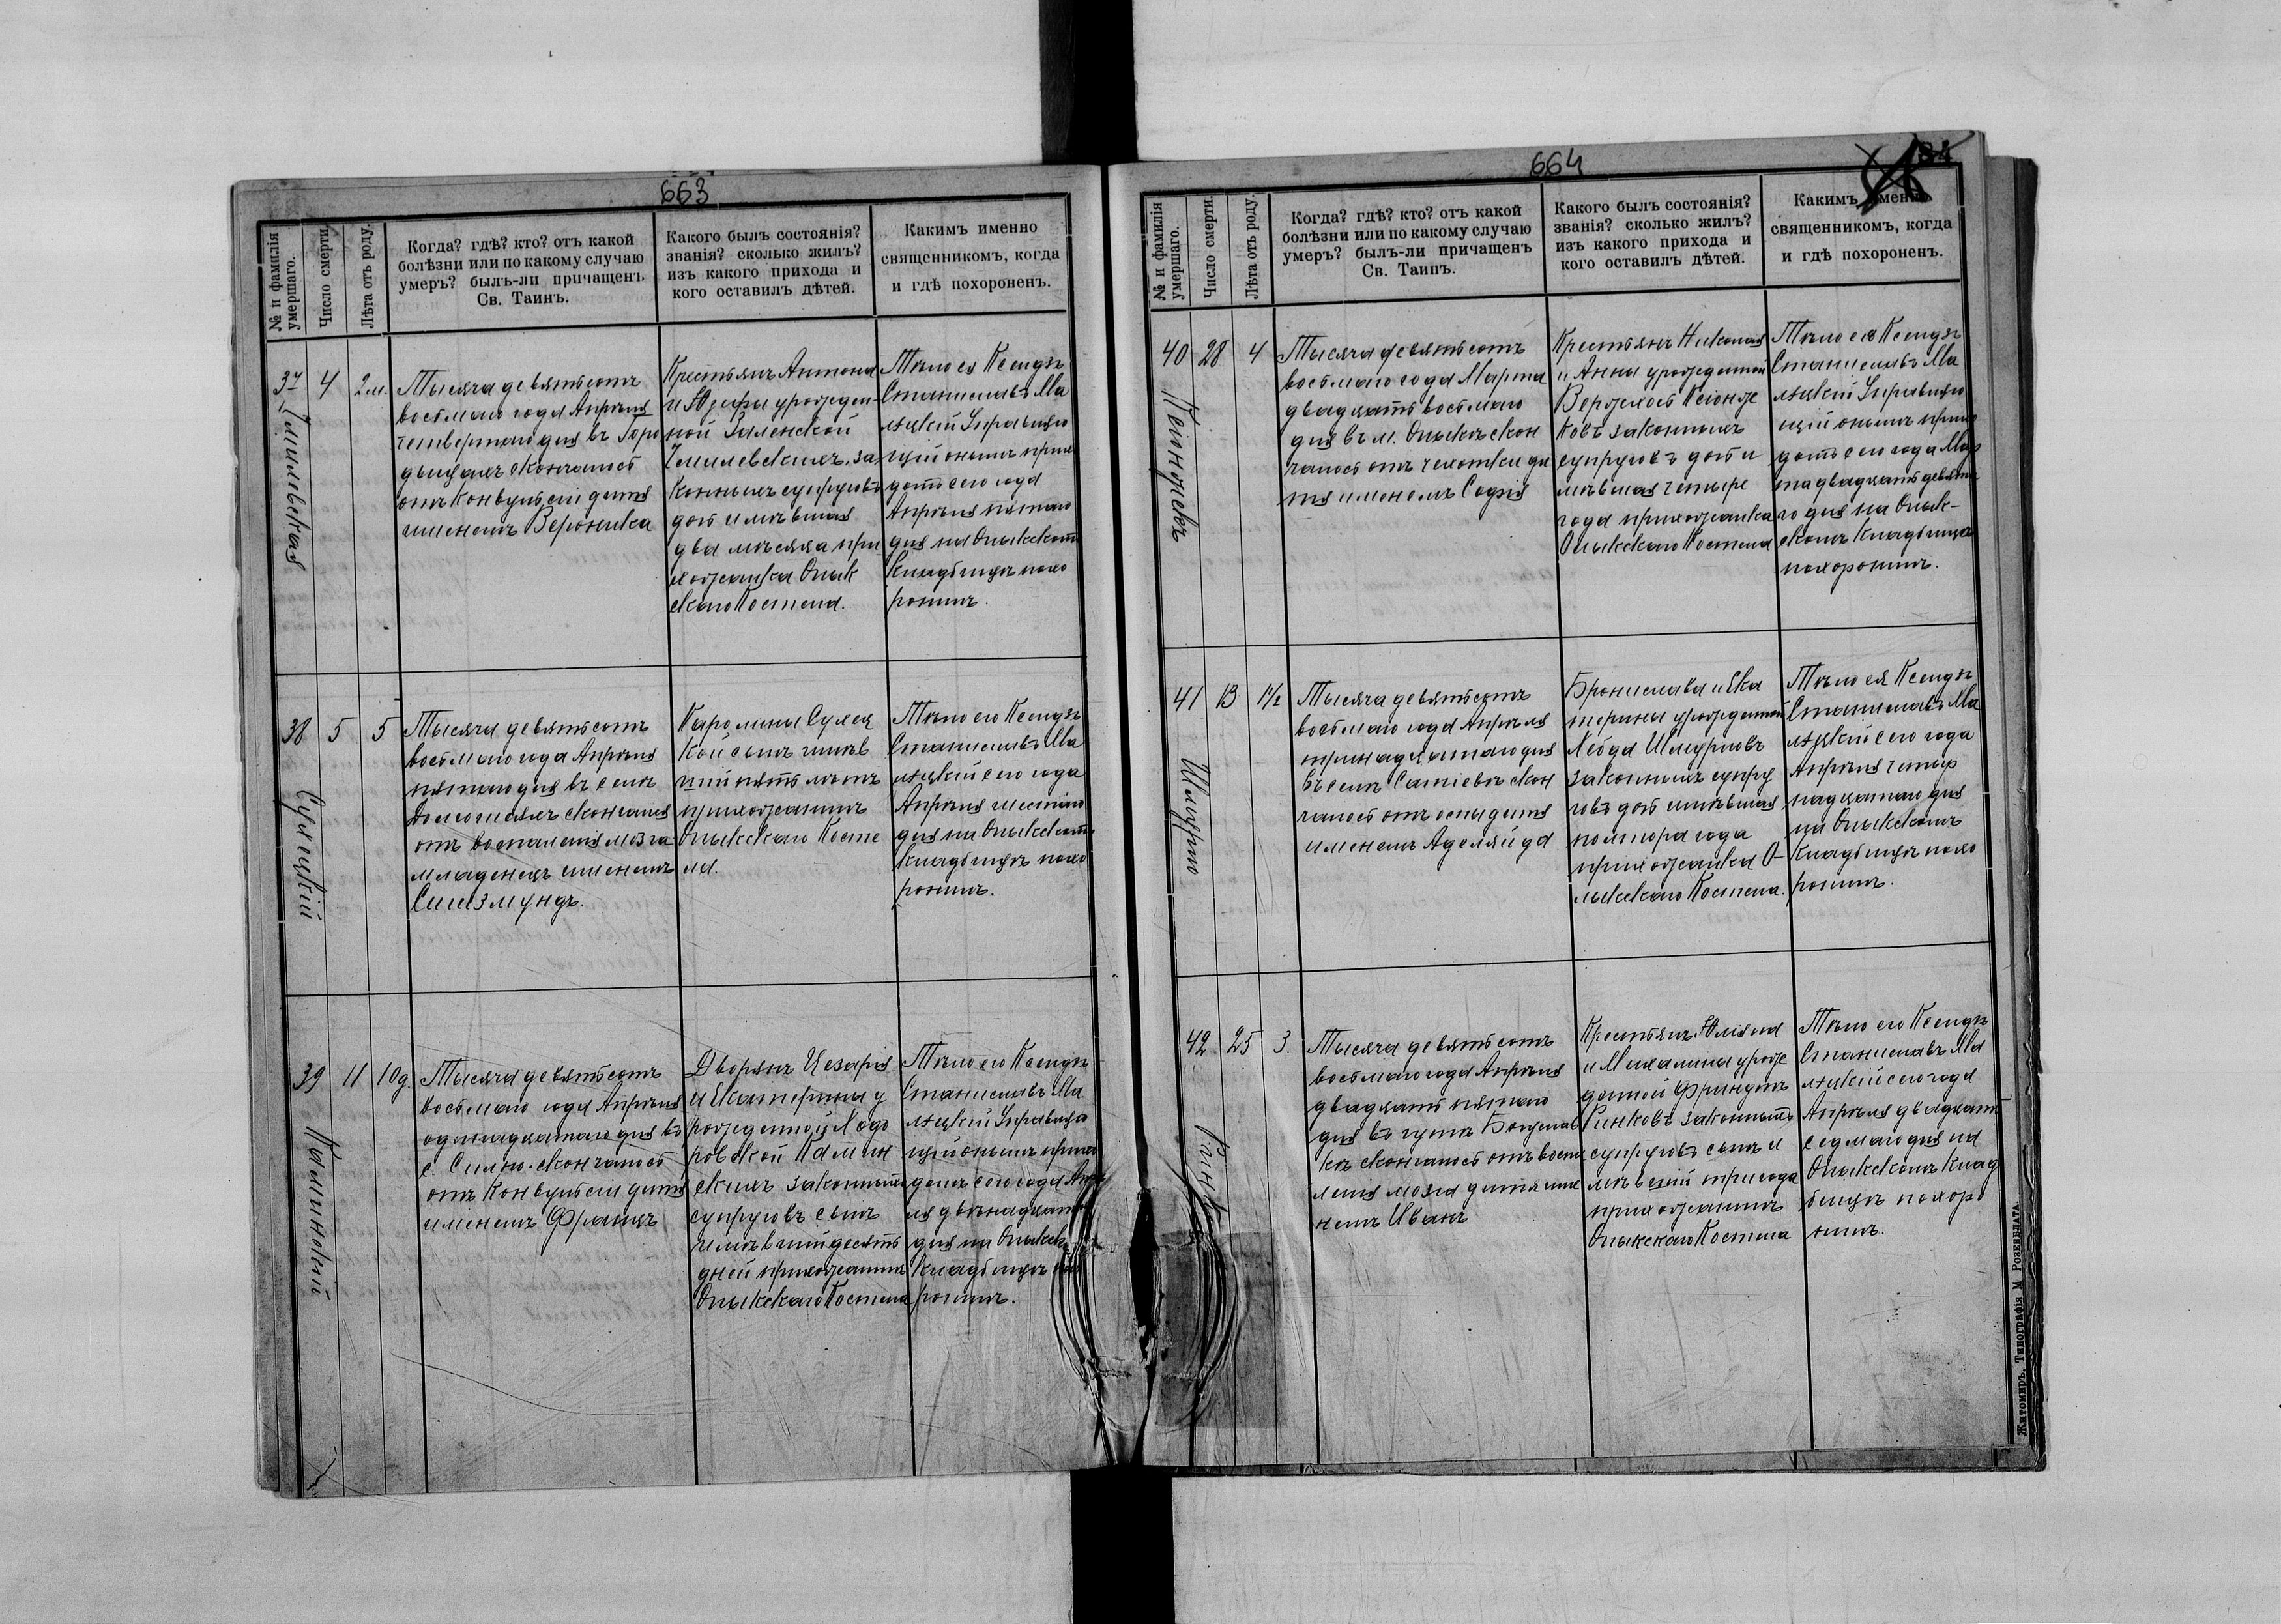 663
№ и фамилія
умершаго.
Число смерти.
Лѣта отъ роду.
Когда? гдѣ? кто? отъ какой
болѣзни или по какому случаю
умеръ? былъ-ли причащенъ
Св. Таинъ.
Какого былъ состоянія?
званія? сколько жилъ?
изъ какого прихода и
кого оставилъ дѣтей.
Какимъ именно
священникомъ, когда
и гдѣ похороненъ.
37
4
2 м.
Тысяча девятьсотъ
восьмаго года Апрѣля
четвертаго дня въ Горо
дыщахъ скончалось
отъ конвульсіи дитя
именемъ Вероника
Крестьянъ Антона
и Юзефы урожден-
ной
за
конныхъ супруговъ
дочь имѣвшая
два мѣсяца при
хожанка Олык
скаго Костела.
Тѣло ея Ксендзъ
Станиславъ Ма
лецкій Управляю
щій онымъ прихо
домъ сего года
Апрѣля пятаго
дня на Олыкскомъ
кладбищѣ похо
ронилъ.
38
Сухецкій
5
5
Тысяча девятьсотъ
восьмаго года Апрѣля
пятаго дня въ селѣ
скончался
отъ воспаленія мозга
младенецъ именемъ
Сигизмундъ.
Каролины Сухец
кой сынъ имѣв
шій пять лѣтъ
прихожанинъ
Олыкскаго Косте
ла.
Тѣло его Ксендзъ
Станиславъ Ма
лецкій сего года
Апрѣля шестаго
дня на Олыкскомъ
кладбищѣ похо
ронилъ.
39
Каминскій
11
10 д.
Тысяча девятьсотъ
восьмаго года Апрѣля
одинадцатаго дня въ
с. Сильно скончалось
отъ конвульсіи дитя
именемъ Францъ
Дворянъ Цезарія
и Екатерины у
рожденной Ходо
ровской Камин
скихъ законныхъ
супруговъ сынъ
имѣвшій десять
дней прихожанинъ
Олыкскаго Костела
Тѣло его Ксендзъ
Станиславъ Ма
лецкій Управляю
щій онымъ прихо
домъ сего года Апрѣ
ля двѣнадцатаго
дня на Олыкск.
кладбищѣ похо
ронилъ.
664
№ и фамилія
умершаго.
Число смерти.
Лѣта отъ роду.
Когда? гдѣ? кто? отъ какой
болѣзни или по какому случаю
умеръ? былъ-ли причащенъ
Св. Таинъ.
Какого былъ состоянія?
званія? сколько жилъ?
изъ какого прихода и
кого оставилъ дѣтей.
Какимъ именно
священникомъ, когда
и гдѣ похороненъ.
40
28
4
Тысяча девятьсотъ
восьмаго года Марта
двадцать восьмаго
дня въ м. Олыкѣ скон
чалось отъ чахотки ди
тя именемъ Софія
Крестьянъ Николая
и Анны урожденной
законныхъ
супруговъ дочь и
мѣвшая четыре
года прихожанка
Олыкскаго Костела
Тѣло ея Ксендзъ
Станиславъ Ма
лецкій Управляю
щій онымъ прихо
домъ сего года Мар
та двадцать девята
го дня на Олык-
скомъ кладбищѣ
похоронилъ.
41
13
1 1/2
Тысяча девятьсотъ
восьмаго года Апрѣля
тринадцатаго дня
въ селѣ скон
чалось отъ оспы дитя
именемъ Аделяйда
Бронислава и Ека
терины урожденной
законныхъ супру
говъ дочь имѣвшая
полтора года
прихожанка О-
лыкскаго Костела.
Тѣло ея Ксендзъ
Станиславъ Ма
лецкій сего года
Апрѣля четыр
надцатаго дня
на Олыкскомъ
кладбищѣ похо
ронилъ.
42
25
3.
Тысяча девятьсотъ
восьмаго года Апрѣля
двадцать пятаго
дня въ
скончалось отъ воспа
ленія мозга дитя име
немъ Иванъ
Крестьянъ Юліяна
и Михалины урож
денной
законныхъ
супруговъ сынъ и
мѣвшій три года
прихожанинъ
Олыкскаго Костела
Тѣло его Ксендзъ
Станиславъ Ма
лецкій сего года
Апрѣля двадцать
седьмаго дня на
Олыкскомъ клад
бищѣ похоро
нилъ.
Житомиръ. Типографія М Розенблата.